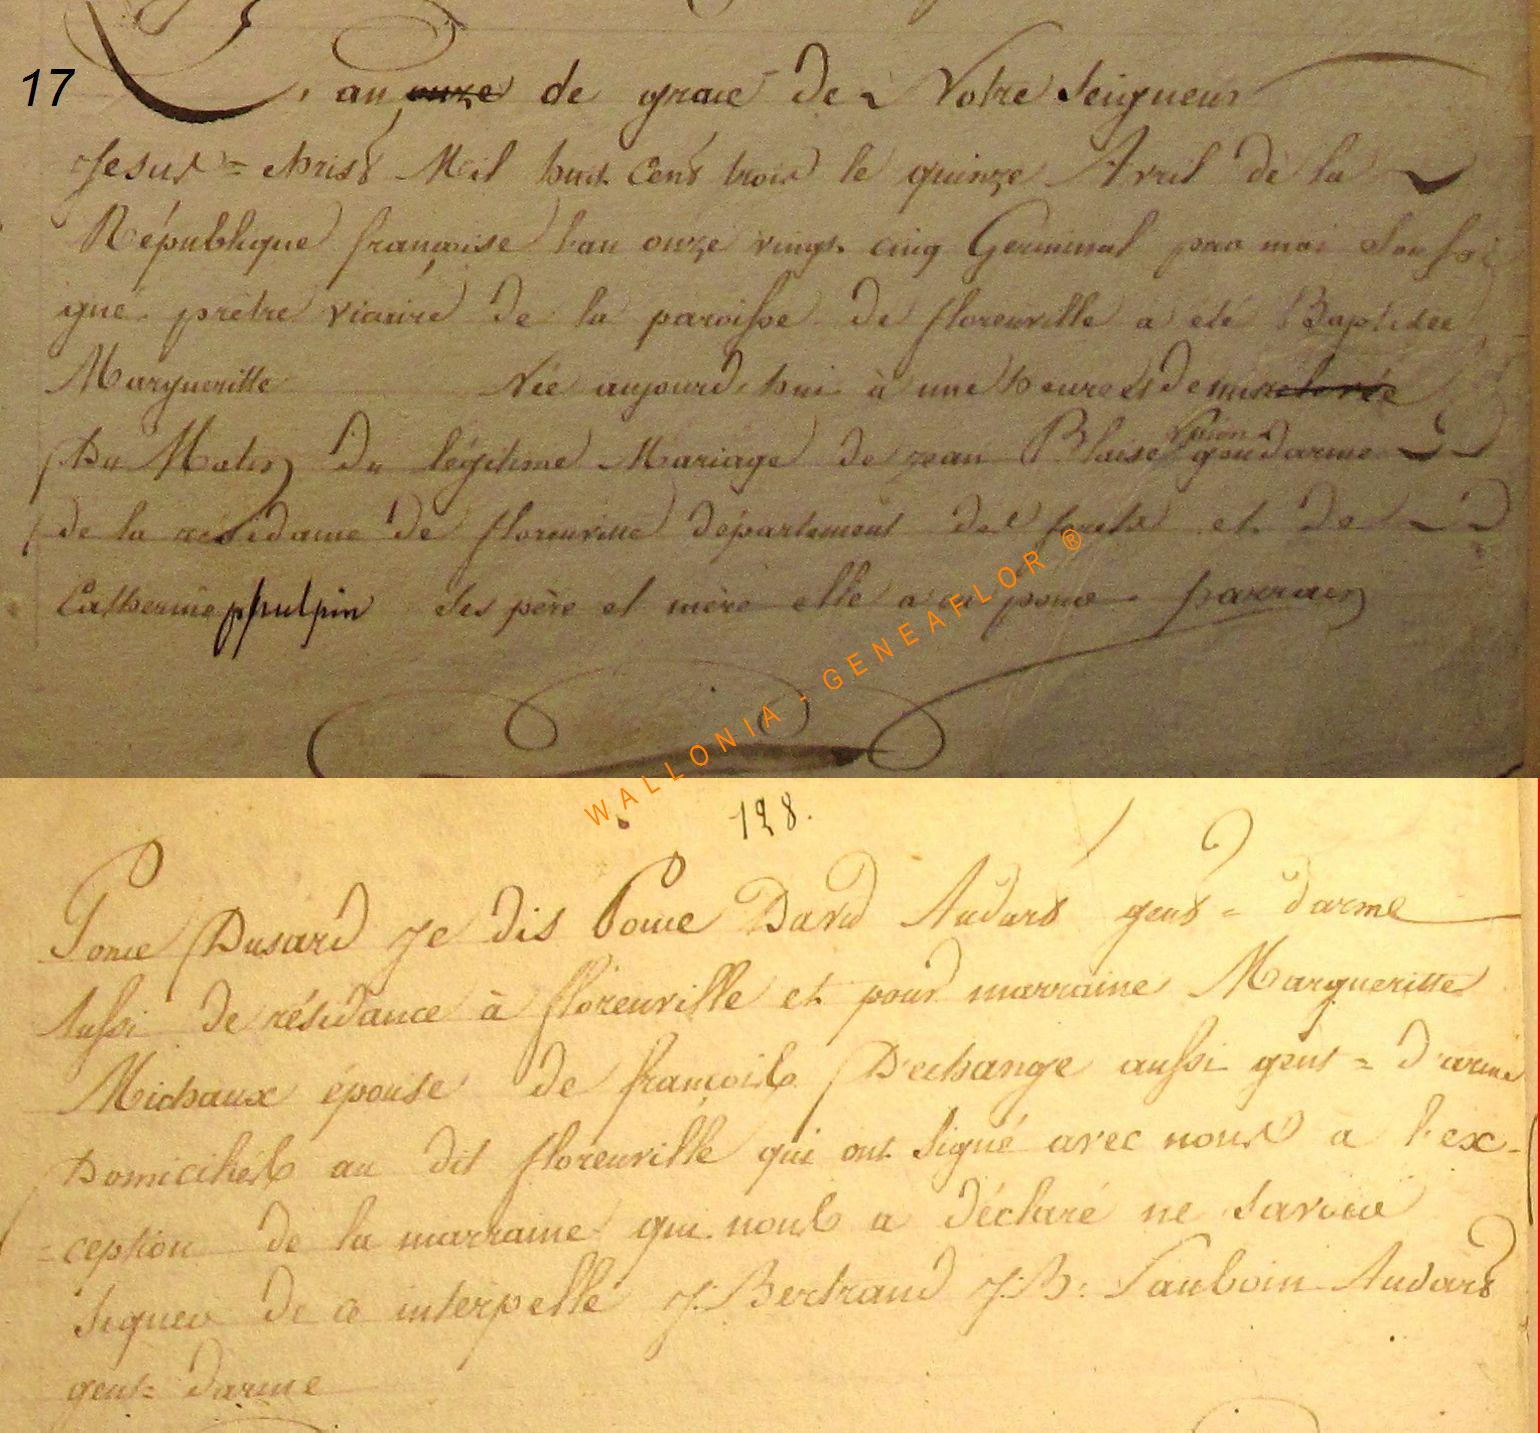 17
L'an onze de grace de Notre Seigneur
Jesus = Christ Mil huit Cent trois le quinze Avril de la
République françoise l'an onze vingt cinq Germinal par moi Soussi
gné prêtre vicaire de la paroisse de florenville a été Baptisée
Margueritte Née aujourd'hui à une heure et demie
Du Matin Du légitime Mariage de jean Blaise gendarme
de la résidance de florenville département des forets et de
Catherine phulpin ses père et mère elle a eu pour parrain
WALLONIA - GENEAFLOR ®
128.
Ponce Dusard je dis Ponce David Audard gens = darme
Aussi de résidance à florenville et pour marraine Margueritte
Michaux épouse de françois Dechange aussi gens = d'arme
Domiciliés au dit florenville qui ont signé avec nous a l'ex-
=ception de la marraine qui nous a déclaré ne savoir
signer de ce interpellé J: Bertrand J: B: Sauboin Audard
gens= darme